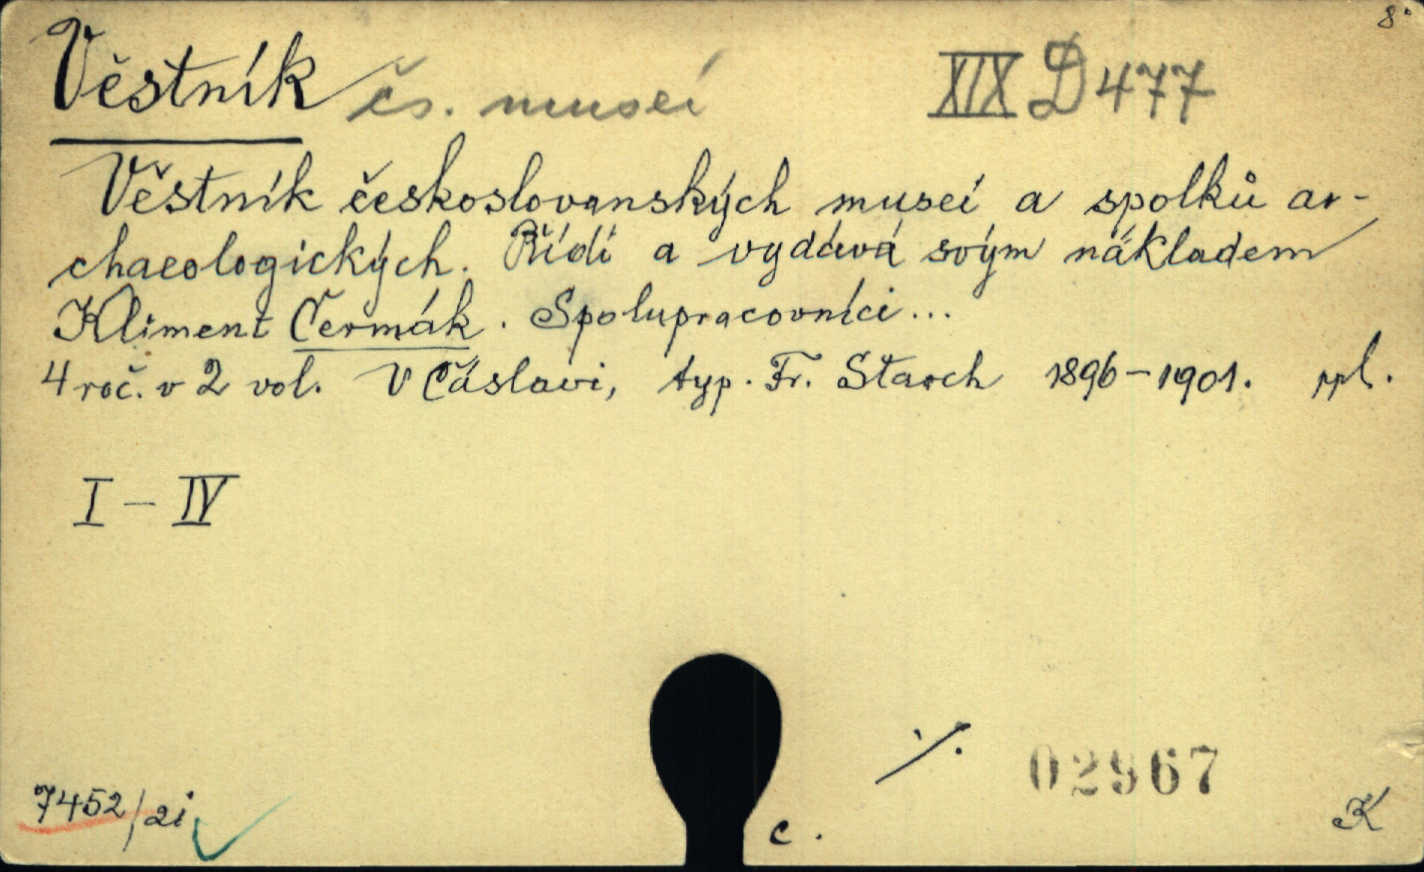 8°
Věstník čs. museí XIX D 477
Věstník českoslovanských museí a spolků ar-
chaeologických. Řídí a vydává svým nákladem
Kliment Čermák. Spolupracovníci...
4 roč. v 2 vol. V Čáslavi, typ. Fr. Starch 1896-1901. ppl.
I - IV
7452/2i
c.
02967
K